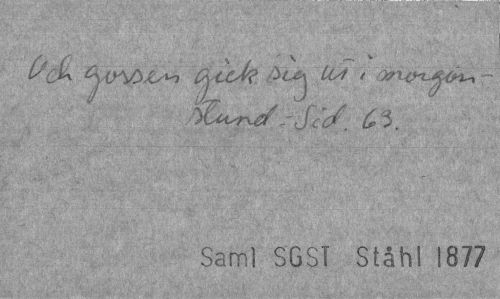 Och gossen gick sig ut i morgon-
stund. - Sid. 63.
Saml SGST Ståhl 1877